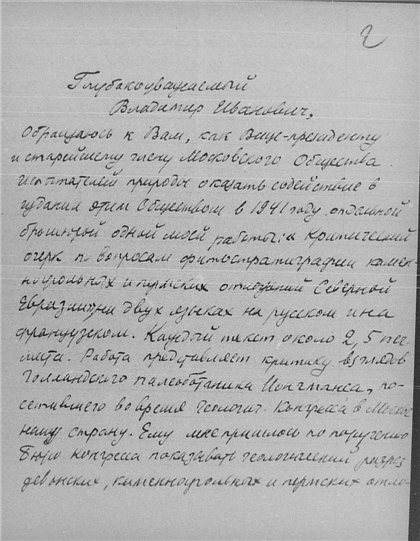 2
Глубокоуважаемый
Владимир Иванович,
Обращаюсь к Вам, как Вице-президенту
и старейшему члену Московского Общества
испытателей природы оказать содействие в
издании этим Обществом в 1941 году отдельной
брошюрой одной моей работы: « Критический
очерк по вопросам фитостратиграфии камен-
ноугольных и пермских отложений Северной
Евразии на двух языках на русском и на
французском. Каждый текст около 2,5 печ.
листа. Работа представляет критику взглядов
Голландского палеоботаника Ионгманса, по-
сетившего во время Геологич. Конгресса в Москве
нашу страну. Ему мне пришлось по поручению
Бюро конгресса показывать геологический разрез
девонских, каменноугольных и пермских отло-